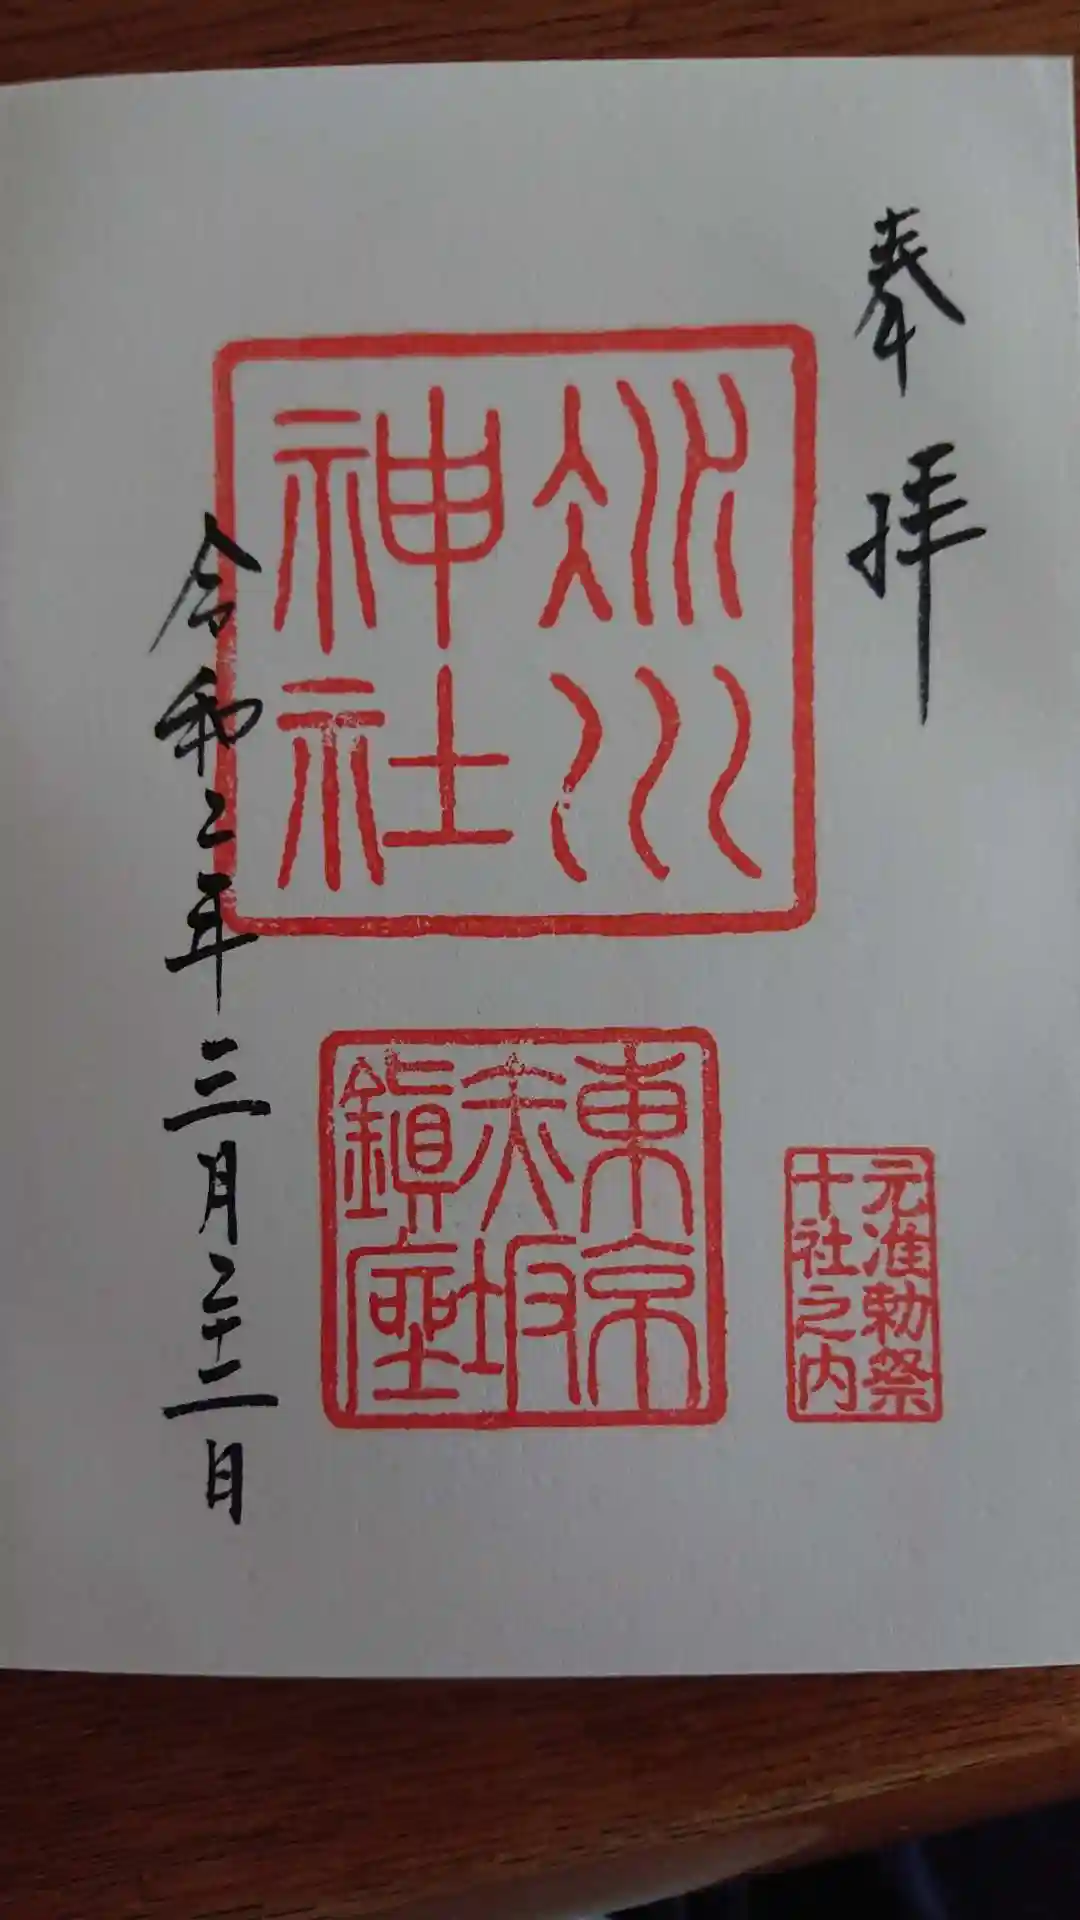 奉拝
冰川
神社
令和二年三月二十二日
東京
赤坂
鎭座
元准勅祭
十社之内